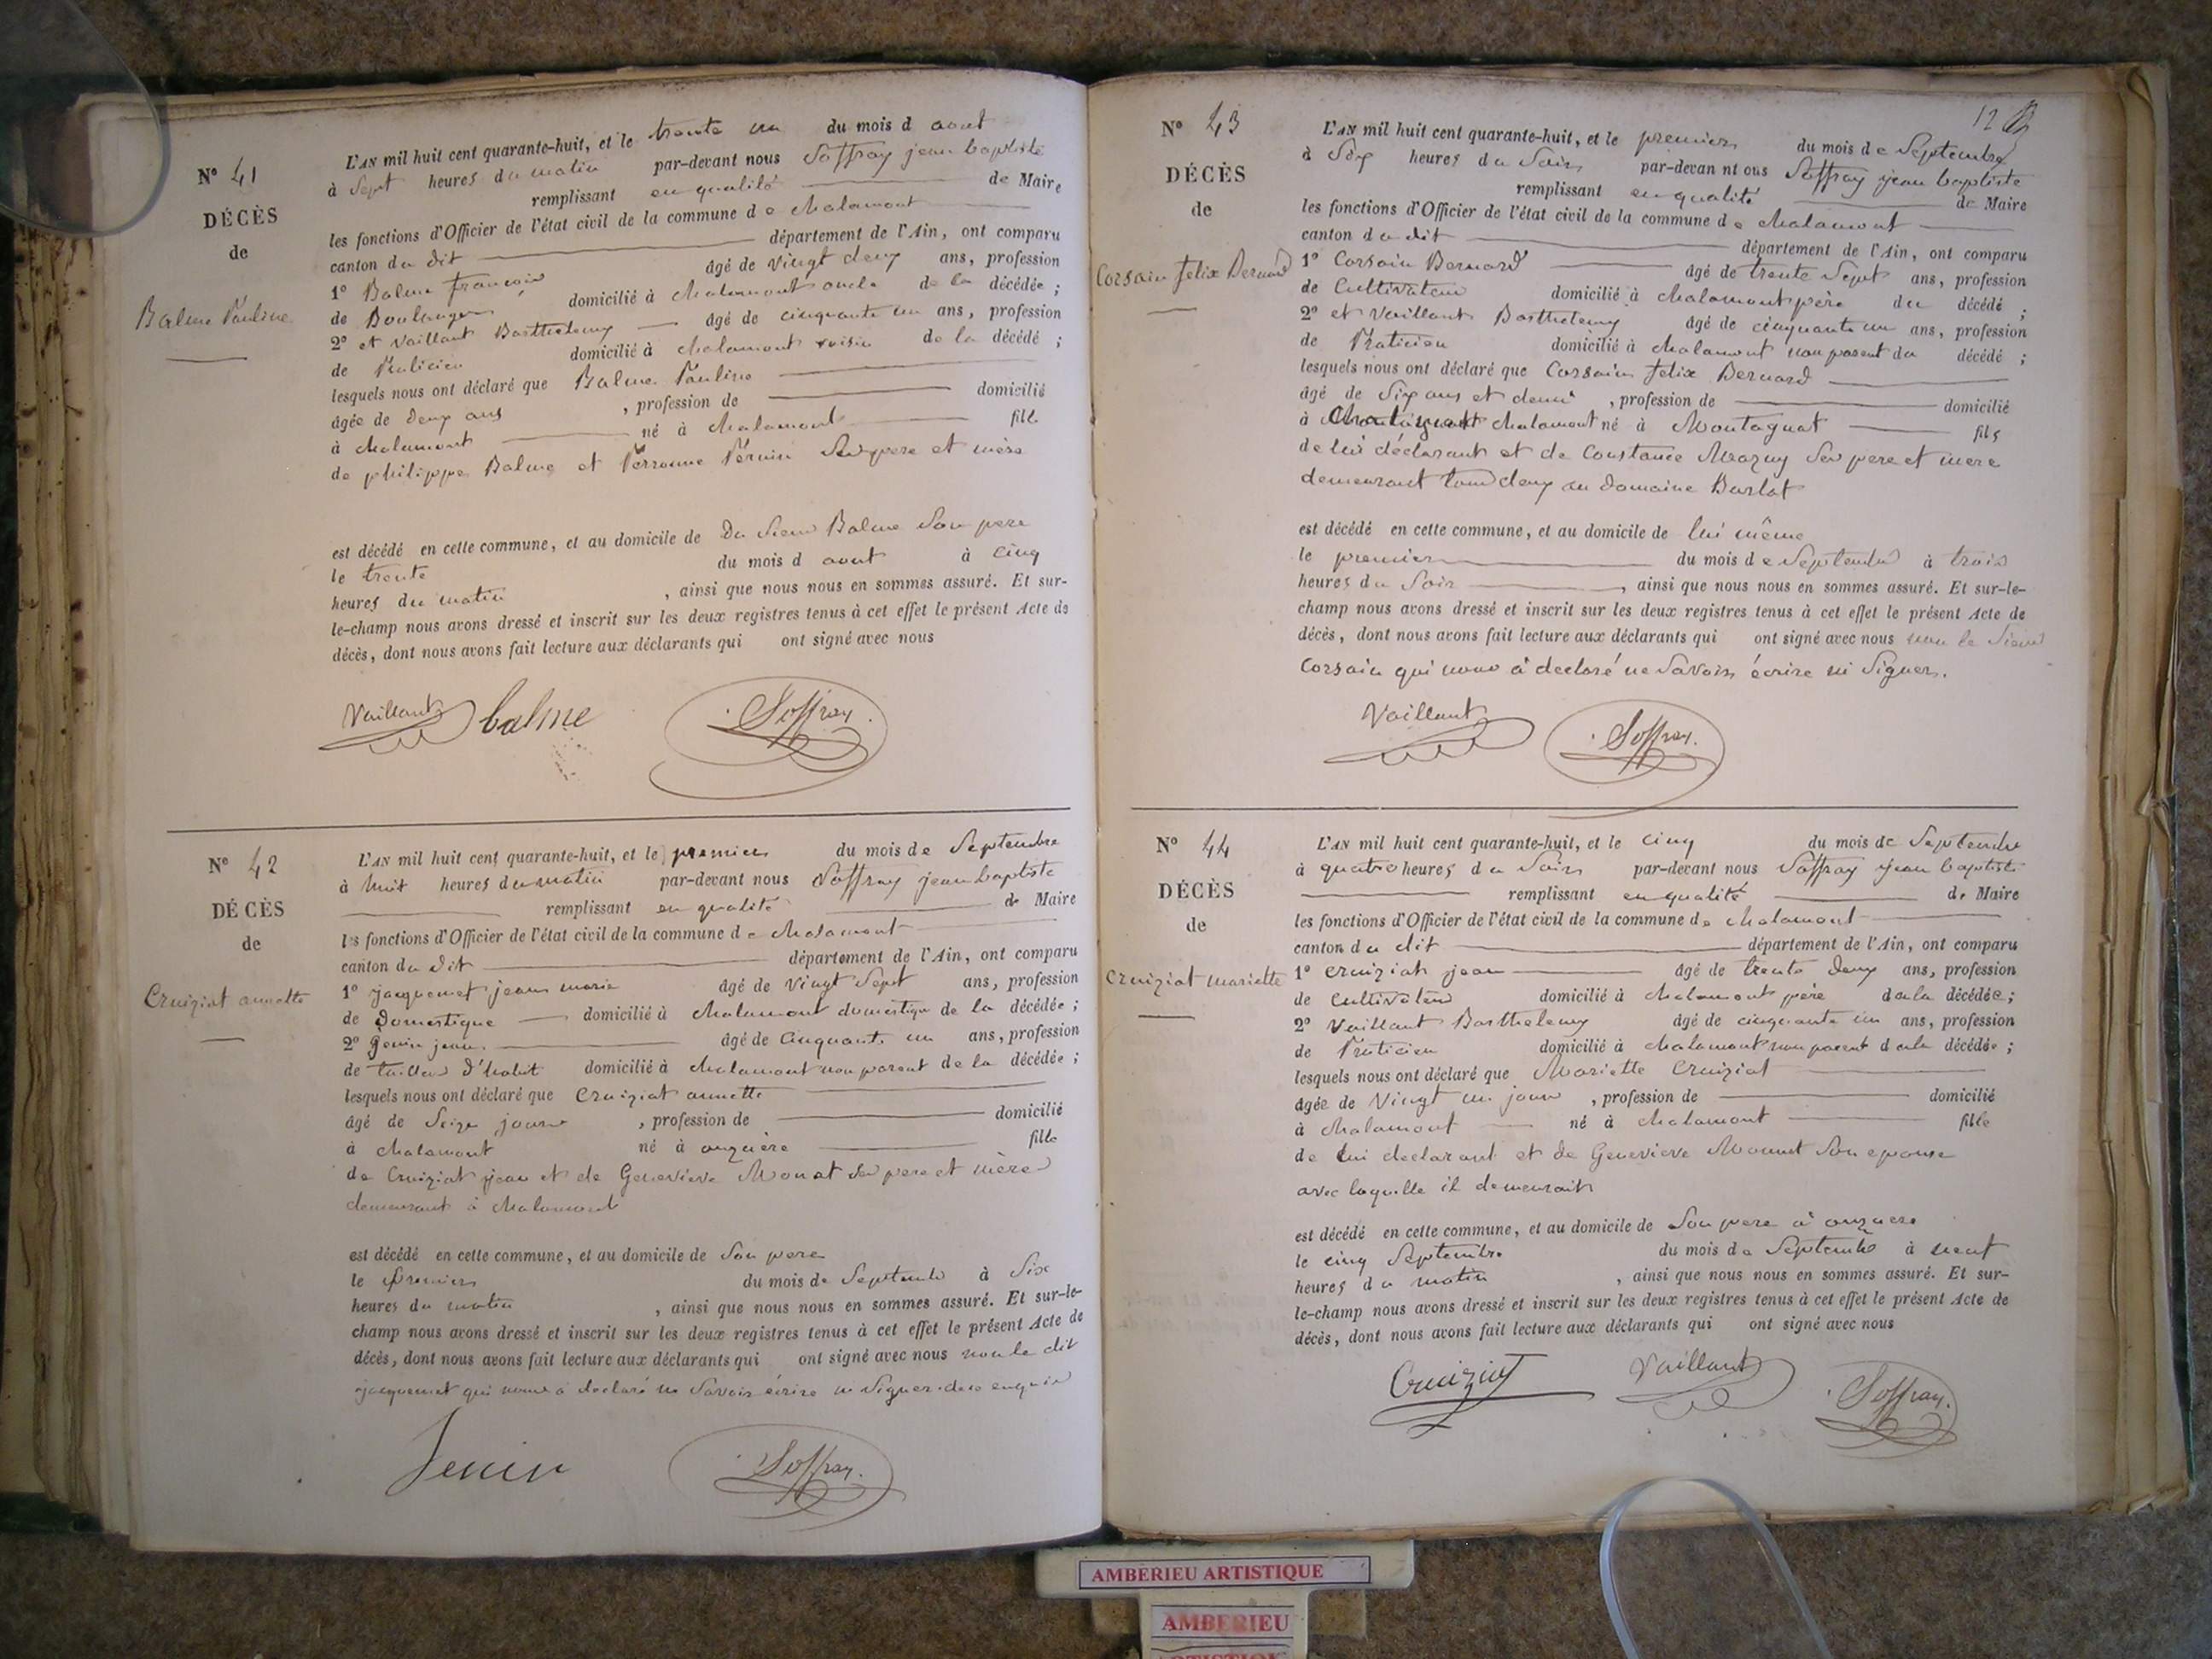 N° 41
DÉCÈS
de
Balme Pauline
L'AN mil huit cent quarante-huit, et le trente un du mois d aout
à Sept heures du matin par-devant nous Soffray jean baptiste
remplissant en qualité de Maire
les fonctions d'Officier de l'état civil de la commune de chalamont
canton du dit département de l'Ain, ont comparu
1° Balme françois âgé de vingt deux ans, profession
de Boulanger domicilié à chalamont oncle de la décédée ;
2° et Vaillant Barthelemy âgé de cinquante un ans, profession
de Praticien domicilié à chalamont voisin de la décédé ;
lesquels nous ont déclaré que Balme Pauline
âgée de deux ans , profession de domicilié
à chalamont né à chalamont fille
de philippe Balme et Perronne Pernin Ses pere et mère
est décédé en cette commune, et au domicile de Du Sieur Balme Son pere
le trente du mois d aout à cinq
heures du matin , ainsi que nous nous en sommes assuré. Et sur-
le-champ nous avons dressé et inscrit sur les deux registres tenus à cet effet le présent Acte de
décès, dont nous avons fait lecture aux déclarants qui ont signé avec nous
Vaillant balme Soffray.
N° 42
DÉCÈS
de
Cruiziat annette
L'AN mil huit cent quarante-huit, et le premier du mois de Septembre
à huit heures du matin par-devant nous Soffray jean baptiste
remplissant en qualité de Maire
les fonctions d'Officier de l'état civil de la commune de chalamont
canton du dit département de l'Ain, ont comparu
1° jacquemet jean marie âgé de vingt Sept ans, profession
de Domestique domicilié à chalamont domestique de la décédée ;
2° Genin jean. âgé de Cinquante un ans, profession
de tailleur d'habit domicilié à chalamont non parent de la décédée ;
lesquels nous ont déclaré que Cruiziat annette
âgé de Seize jours , profession de domicilié
à chalamont né à fille
de Cruiziat jean et de Genevieve Monat Ses pere et mère
demeurant à chalamont
est décédé en cette commune, et au domicile de Son pere
le Premier du mois de Septembre à Six
heures du matin , ainsi que nous nous en sommes assuré. Et sur-le-
champ nous avons dressé et inscrit sur les deux registres tenus à cet effet le présent Acte de
décès, dont nous avons fait lecture aux déclarants qui ont signé avec nous non le dit
jacquemet qui nous a declaré ne Savoir écrire ni Signer de ce enquis
Jenin Soffray.
12
N° 43
DÉCÈS
de
Corsain felix Bernard
L'AN mil huit cent quarante-huit, et le premier du mois de Septembre
à Six heures du Soir par-devan nt ous Soffray jean baptiste
remplissant en qualité de Maire
les fonctions d'Officier de l'état civil de la commune de chalamont
canton du dit département de l'Ain, ont comparu
1° Corsain Bernard âgé de trente Sept ans, profession
de Cultivateur domicilié à chalamont père du décédé ;
2° et Vaillant Barthelemy âgé de cinquante un ans, profession
de Praticien domicilié à chalamont non parent du décédé ;
lesquels nous ont déclaré que Corsain felix Bernard
âgé de Six ans et demi , profession de domicilié
à chalamont né à Montagnat fils
de lui déclarant et de Constance Ses pere et mere
demeurant tous deux au Domaine Burlat
est décédé en cette commune, et au domicile de lui même
le premier du mois de Septembre à trois
heures du Soir , ainsi que nous nous en sommes assuré. Et sur-le-
champ nous avons dressé et inscrit sur les deux registres tenus à cet effet le présent Acte de
décès, dont nous avons fait lecture aux déclarants qui ont signé avec nous non le Sieur
Corsain qui nous a declaré ne Savoir écrire ni Signer.
Vaillant Soffray.
N° 44
DÉCÈS
de
Cruiziat mariette
L'AN mil huit cent quarante-huit, et le cinq du mois de Septembre
à quatre heures du Soir par-devant nous Soffray jean baptiste
remplissant en qualité de Maire
les fonctions d'Officier de l'état civil de la commune de chalamont
canton du dit département de l'Ain, ont comparu
1° Cruiziat jean âgé de trente deux ans, profession
de Cultivateur domicilié à chalamont père de la décédée ;
2° Vaillant Barthelemy âgé de cinquante un ans, profession
de Praticien domicilié à chalamont non parent de la décédée ;
lesquels nous ont déclaré que Mariette Cruiziat
âgée de Vingt un jours , profession de domicilié
à chalamont né à chalamont fille
de lui declarant et de Genevieve Monnet Son epouse
avec laquelle il demeurait
est décédé en cette commune, et au domicile de Son pere à
le cinq Septembre du mois de Septembre à neuf
heures du matin , ainsi que nous nous en sommes assuré. Et sur-
le-champ nous avons dressé et inscrit sur les deux registres tenus à cet effet le présent Acte de
décès, dont nous avons fait lecture aux déclarants qui ont signé avec nous
Cruiziat Vaillant Soffray.
AMBERIEU ARTISTIQUE
AMBERIEU
ARTISTIQUE